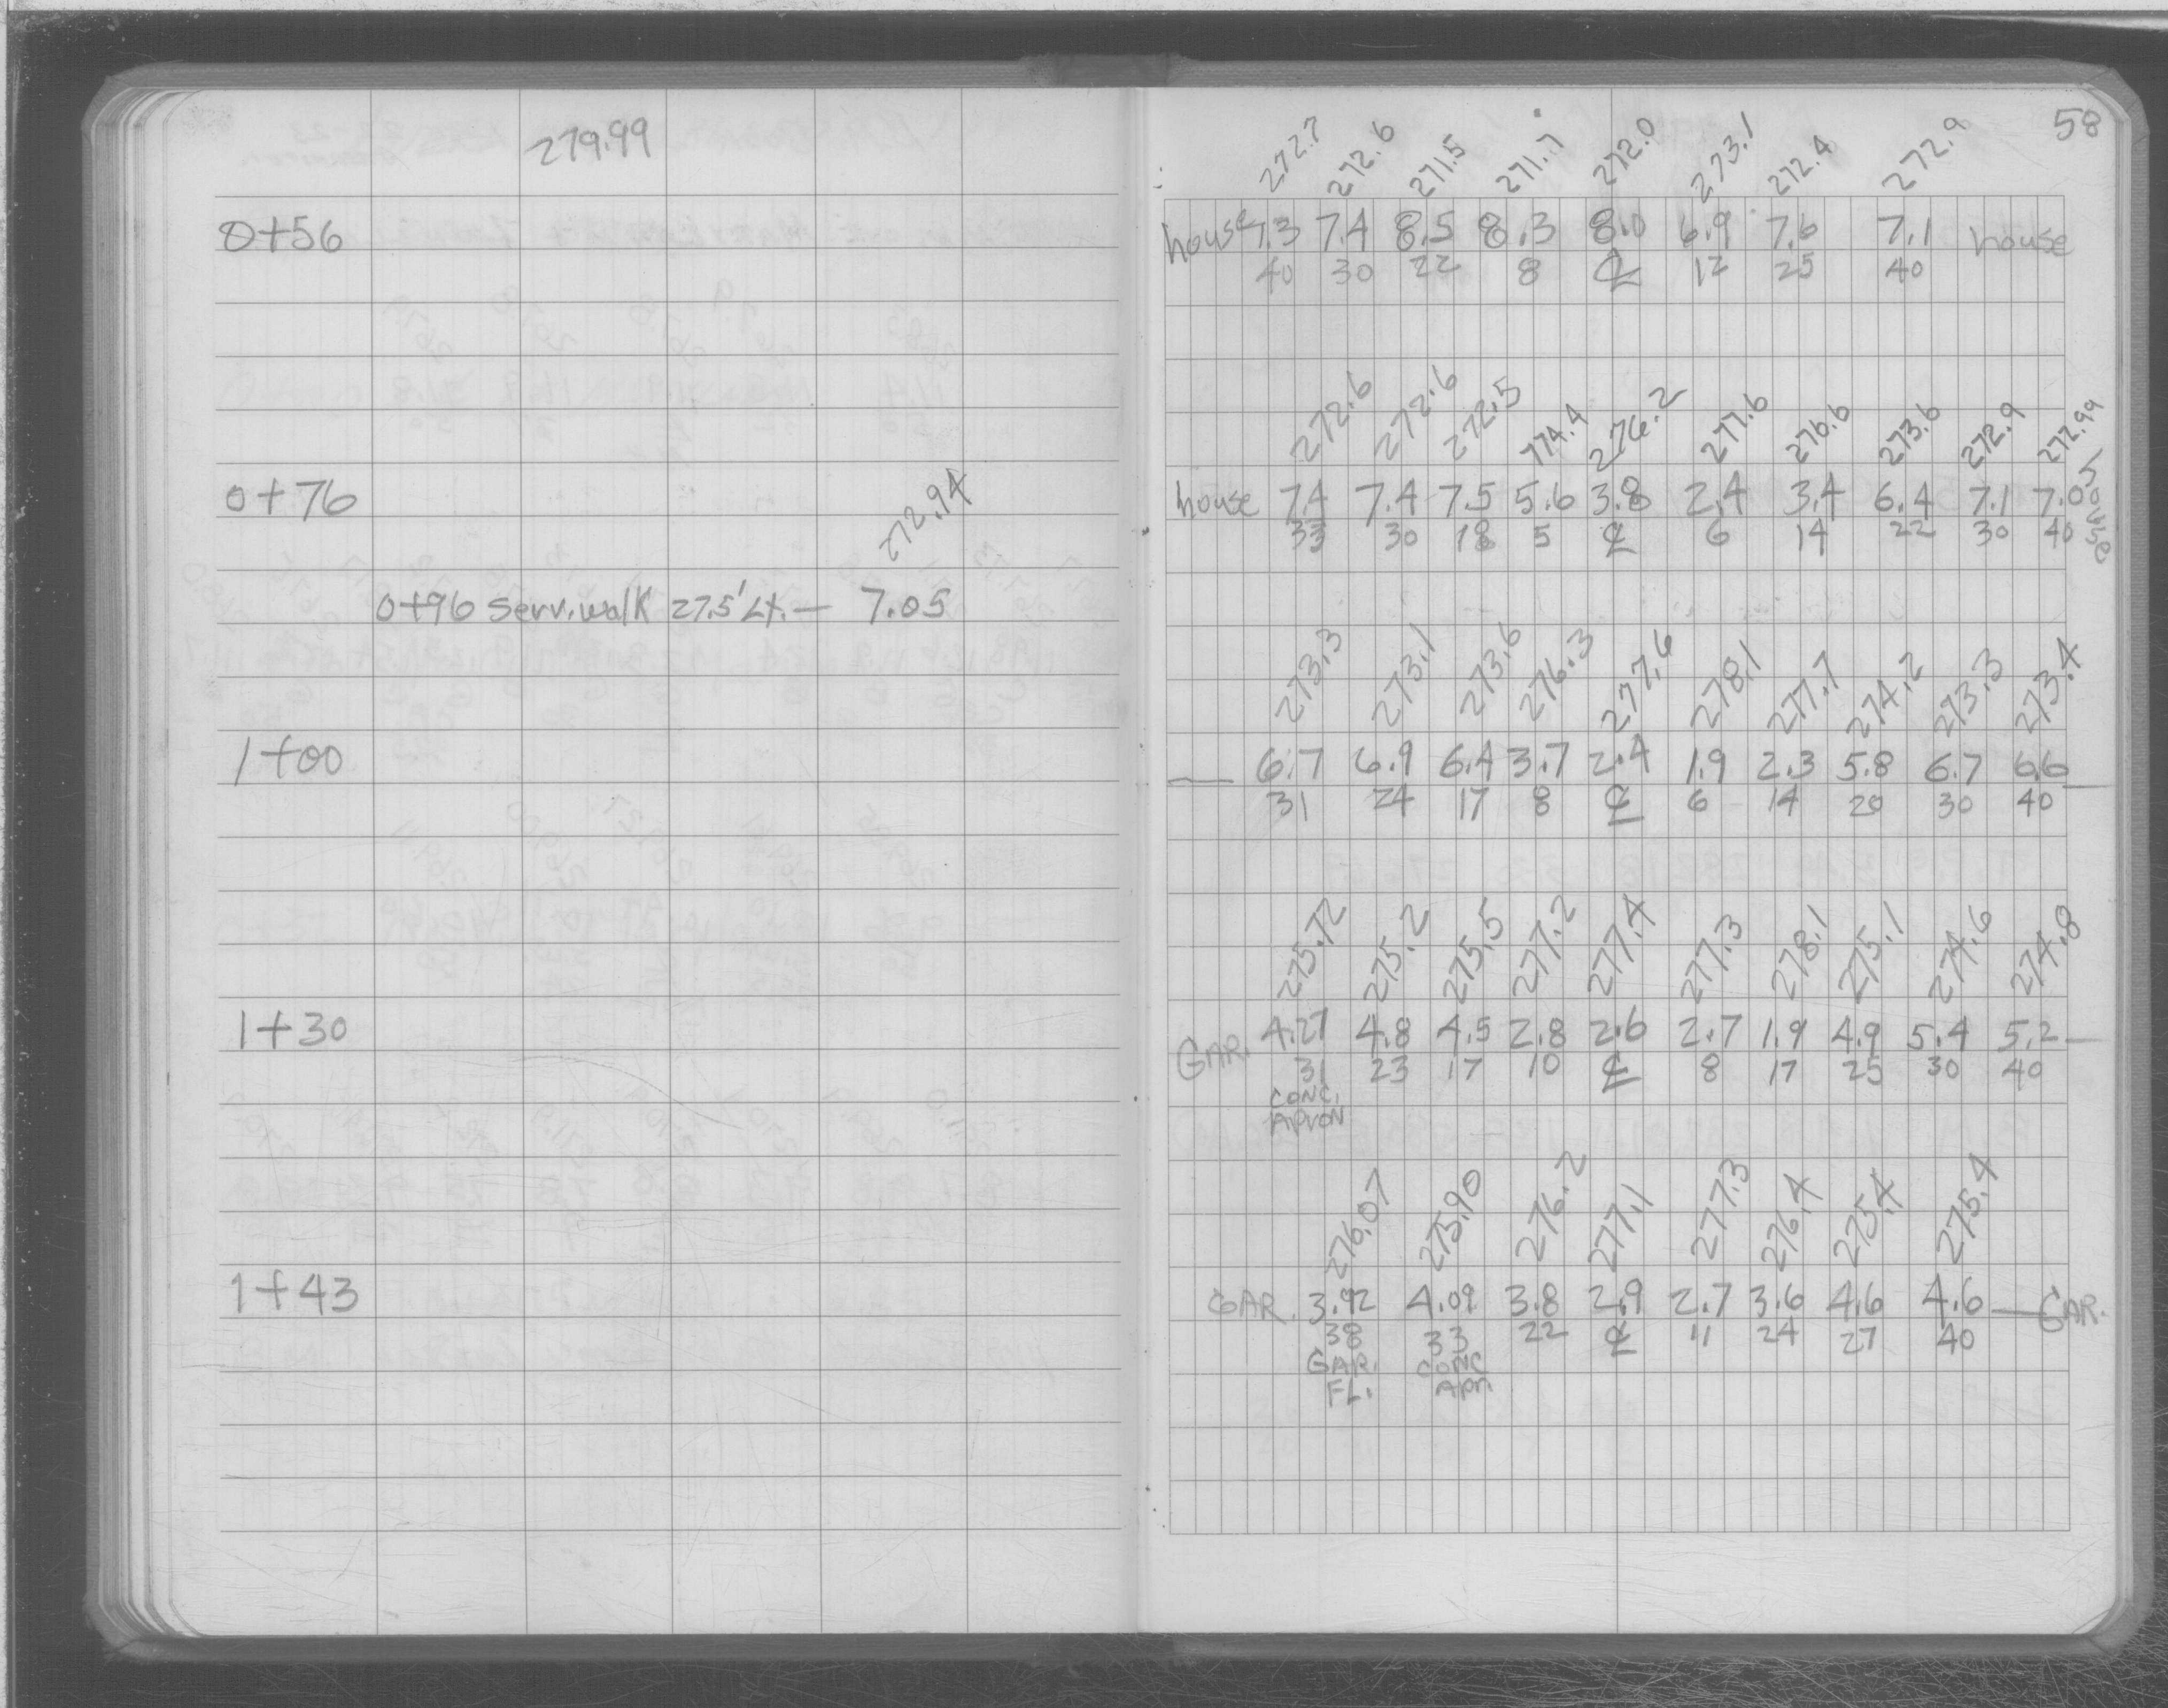 279.99
0+56
0+76
272.94
0+96 Serv. walk 27.5' Lt. — 7.05
1+00
1+30
1+43
58
272.7 272.6 271.5 271.7 272.0 273.1 272.4 272.9
house 7.3 7.4 8.5 8.3 8.0 6.9 7.6 7.1 house
40 30 22 8 ℄ 12 25 40
272.6 272.6 272.5 274.4 276.2 277.6 276.6 273.6 272.9 272.99
house 7.4 7.4 7.5 5.6 3.8 2.4 3.4 6.4 7.1 7.0 house
33 30 18 5 ℄ 6 14 22 30 40
273.3 273.1 273.6 276.3 277.6 278.1 277.7 274.2 273.3 273.4
— 6.7 6.9 6.4 3.7 2.4 1.9 2.3 5.8 6.7 6.6 —
31 24 17 8 ℄ 6 14 20 30 40
275.72 275.2 275.5 277.2 277.4 277.3 278.1 275.1 274.6 274.8
GAR. 4.27 4.8 4.5 2.8 2.6 2.7 1.9 4.9 5.4 5.2 —
31 23 17 10 ℄ 8 17 25 30 40
CONC.
APRON
276.07 275.90 276.2 277.1 277.3 276.4 275.4 275.4
GAR. 3.92 4.09 3.8 2.9 2.7 3.6 4.6 4.6 — GAR.
38 33 22 ℄ 11 24 27 40
GAR. CONC
FL. Apn.